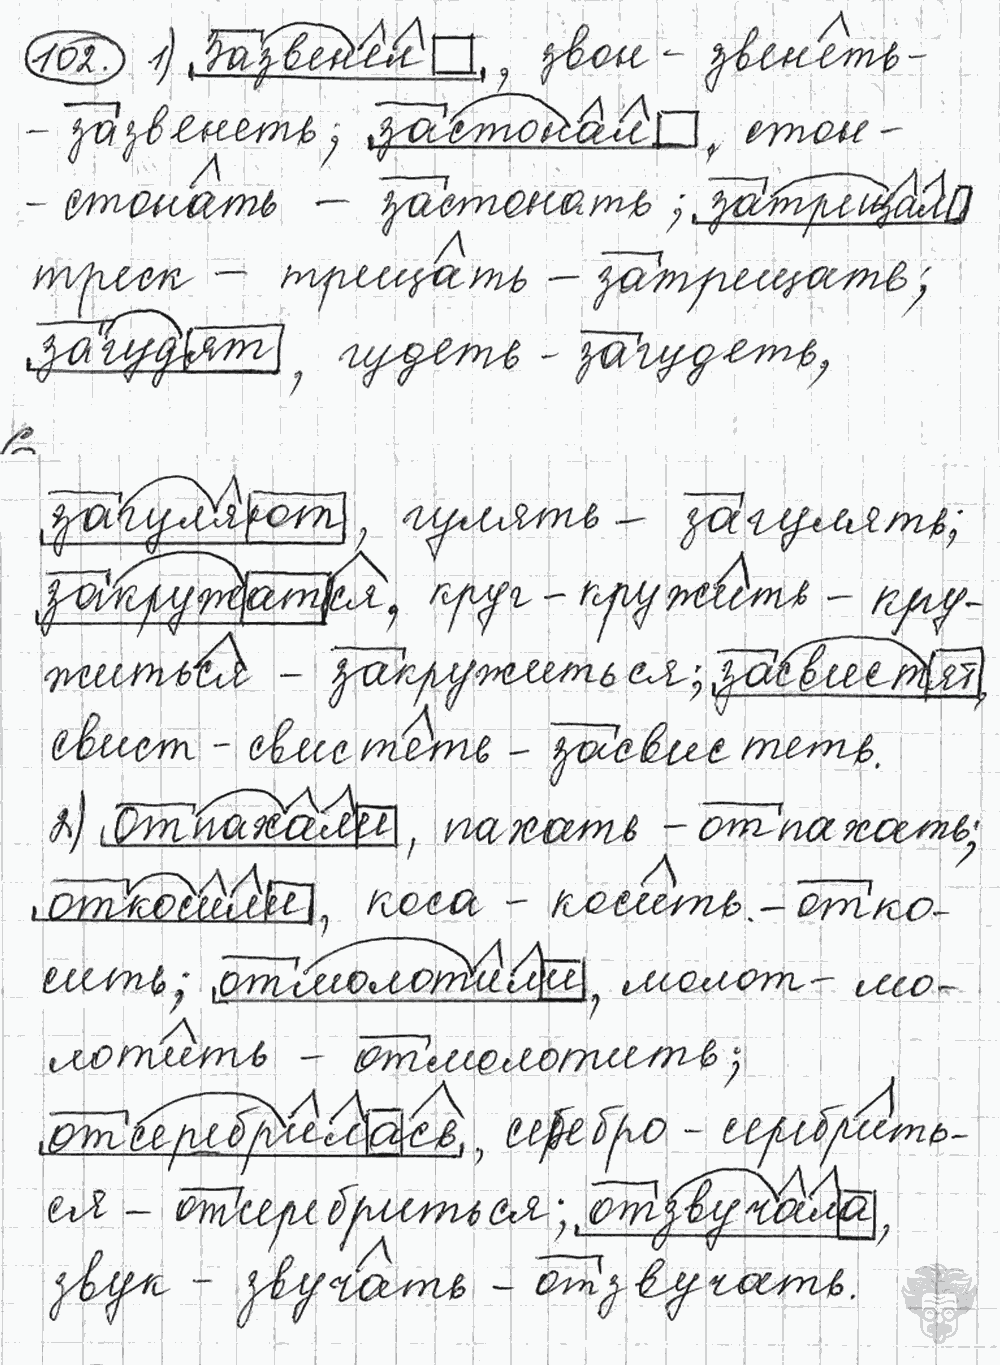 102. 1) Зазвенел, звон - звенеть -
- зазвенеть; застонал, стон -
- стонать - застонать; затрещал
треск - трещать - затрещать;
загудят, гудеть - загудеть,
загуляют, гулять - загулять;
закружатся, круг - кружить - кру-
житься - закружиться; засвистят,
свист - свистеть - засвистеть.
2) отпахали, пахать - отпахать;
откосили, коса - косить. - отко-
сить; отмолотили, молот - мо-
лотить - отмолотить;
отсеребрилась, серебро - серебрить-
ся - отсеребриться; отзвучала,
звук - звучать - отзвучать.